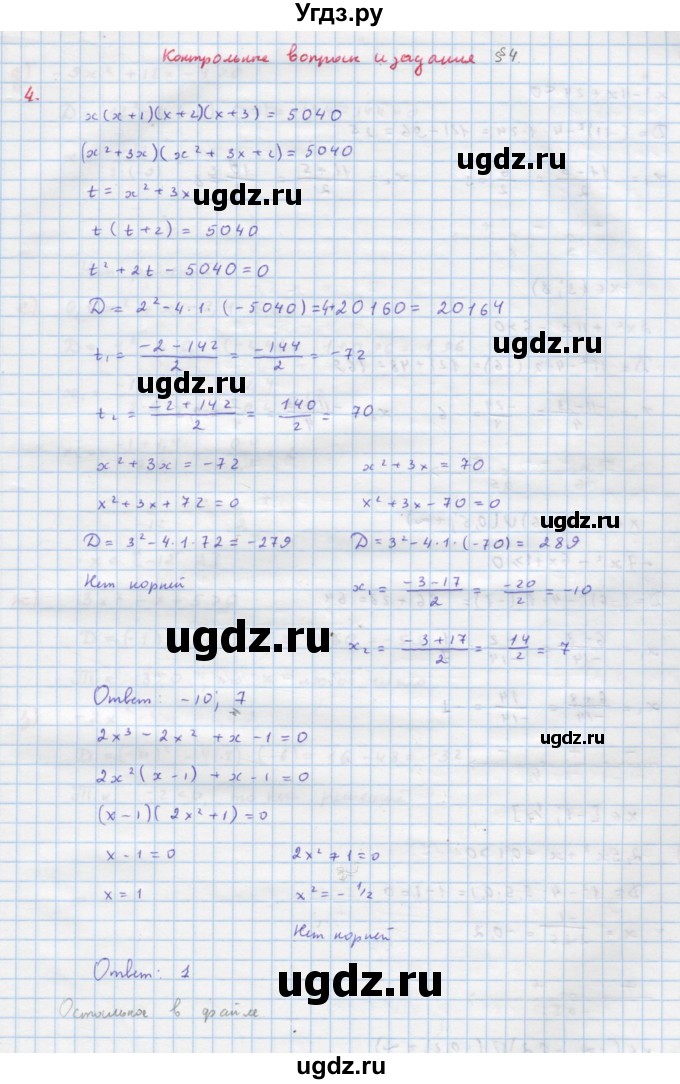 Угдз.ру
Контрольные вопросы и задания §4
4.
x(x+1)(x+2)(x+3) = 5040
(x²+3x)(x²+3x+2) = 5040
ugdz.ru
t = x²+3x
ugdz.ru
t(t+2) = 5040
t²+2t-5040=0
D = 2²-4·1·(-5040)=4+20160= 20164
ugdz.ru
t₁ = (-2-142)/2 = -144/2 = -72
ugdz.ru
t₂ = (-2+142)/2 = 140/2 = 70
x²+3x = -72
x²+3x = 70
x²+3x+72=0
x²+3x-70=0
D = 3²-4·1·72 = -279
D = 3²-4·1·(-70) = 289
Нет корней
x₁ = (-3-17)/2 = -20/2 = -10
ugdz.ru
ugdz.ru
x₂ = (-3+17)/2 = 14/2 = 7
Ответ: -10; 7
2x³-2x²+x-1=0
ugdz.ru
2x²(x-1)+x-1=0
(x-1)(2x²+1)=0
x-1=0
2x²+1=0
x=1
x²=-1/2
Нет корней
Ответ: 1
ugdz.ru
ugdz.ru
Остальное в файле
ugdz.ru